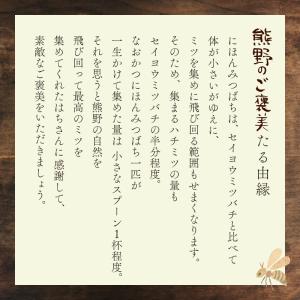 熊野のご褒美たる由縁
にほんみつばちは、セイヨウミツバチと比べて
体が小さいがゆえに、
ミツを集めに飛び回る範囲もせまくなります。
そのため、集まるハチミツの量も
セイヨウミツバチの半分程度。
なおかつにほんみつばち一匹が
一生かけて集めた量は 小さなスプーン1杯程度。
それを思うと熊野の自然を
飛び回って最高のミツを
集めてくれたはちさんに感謝して、
素敵なご褒美をいただきましょう。